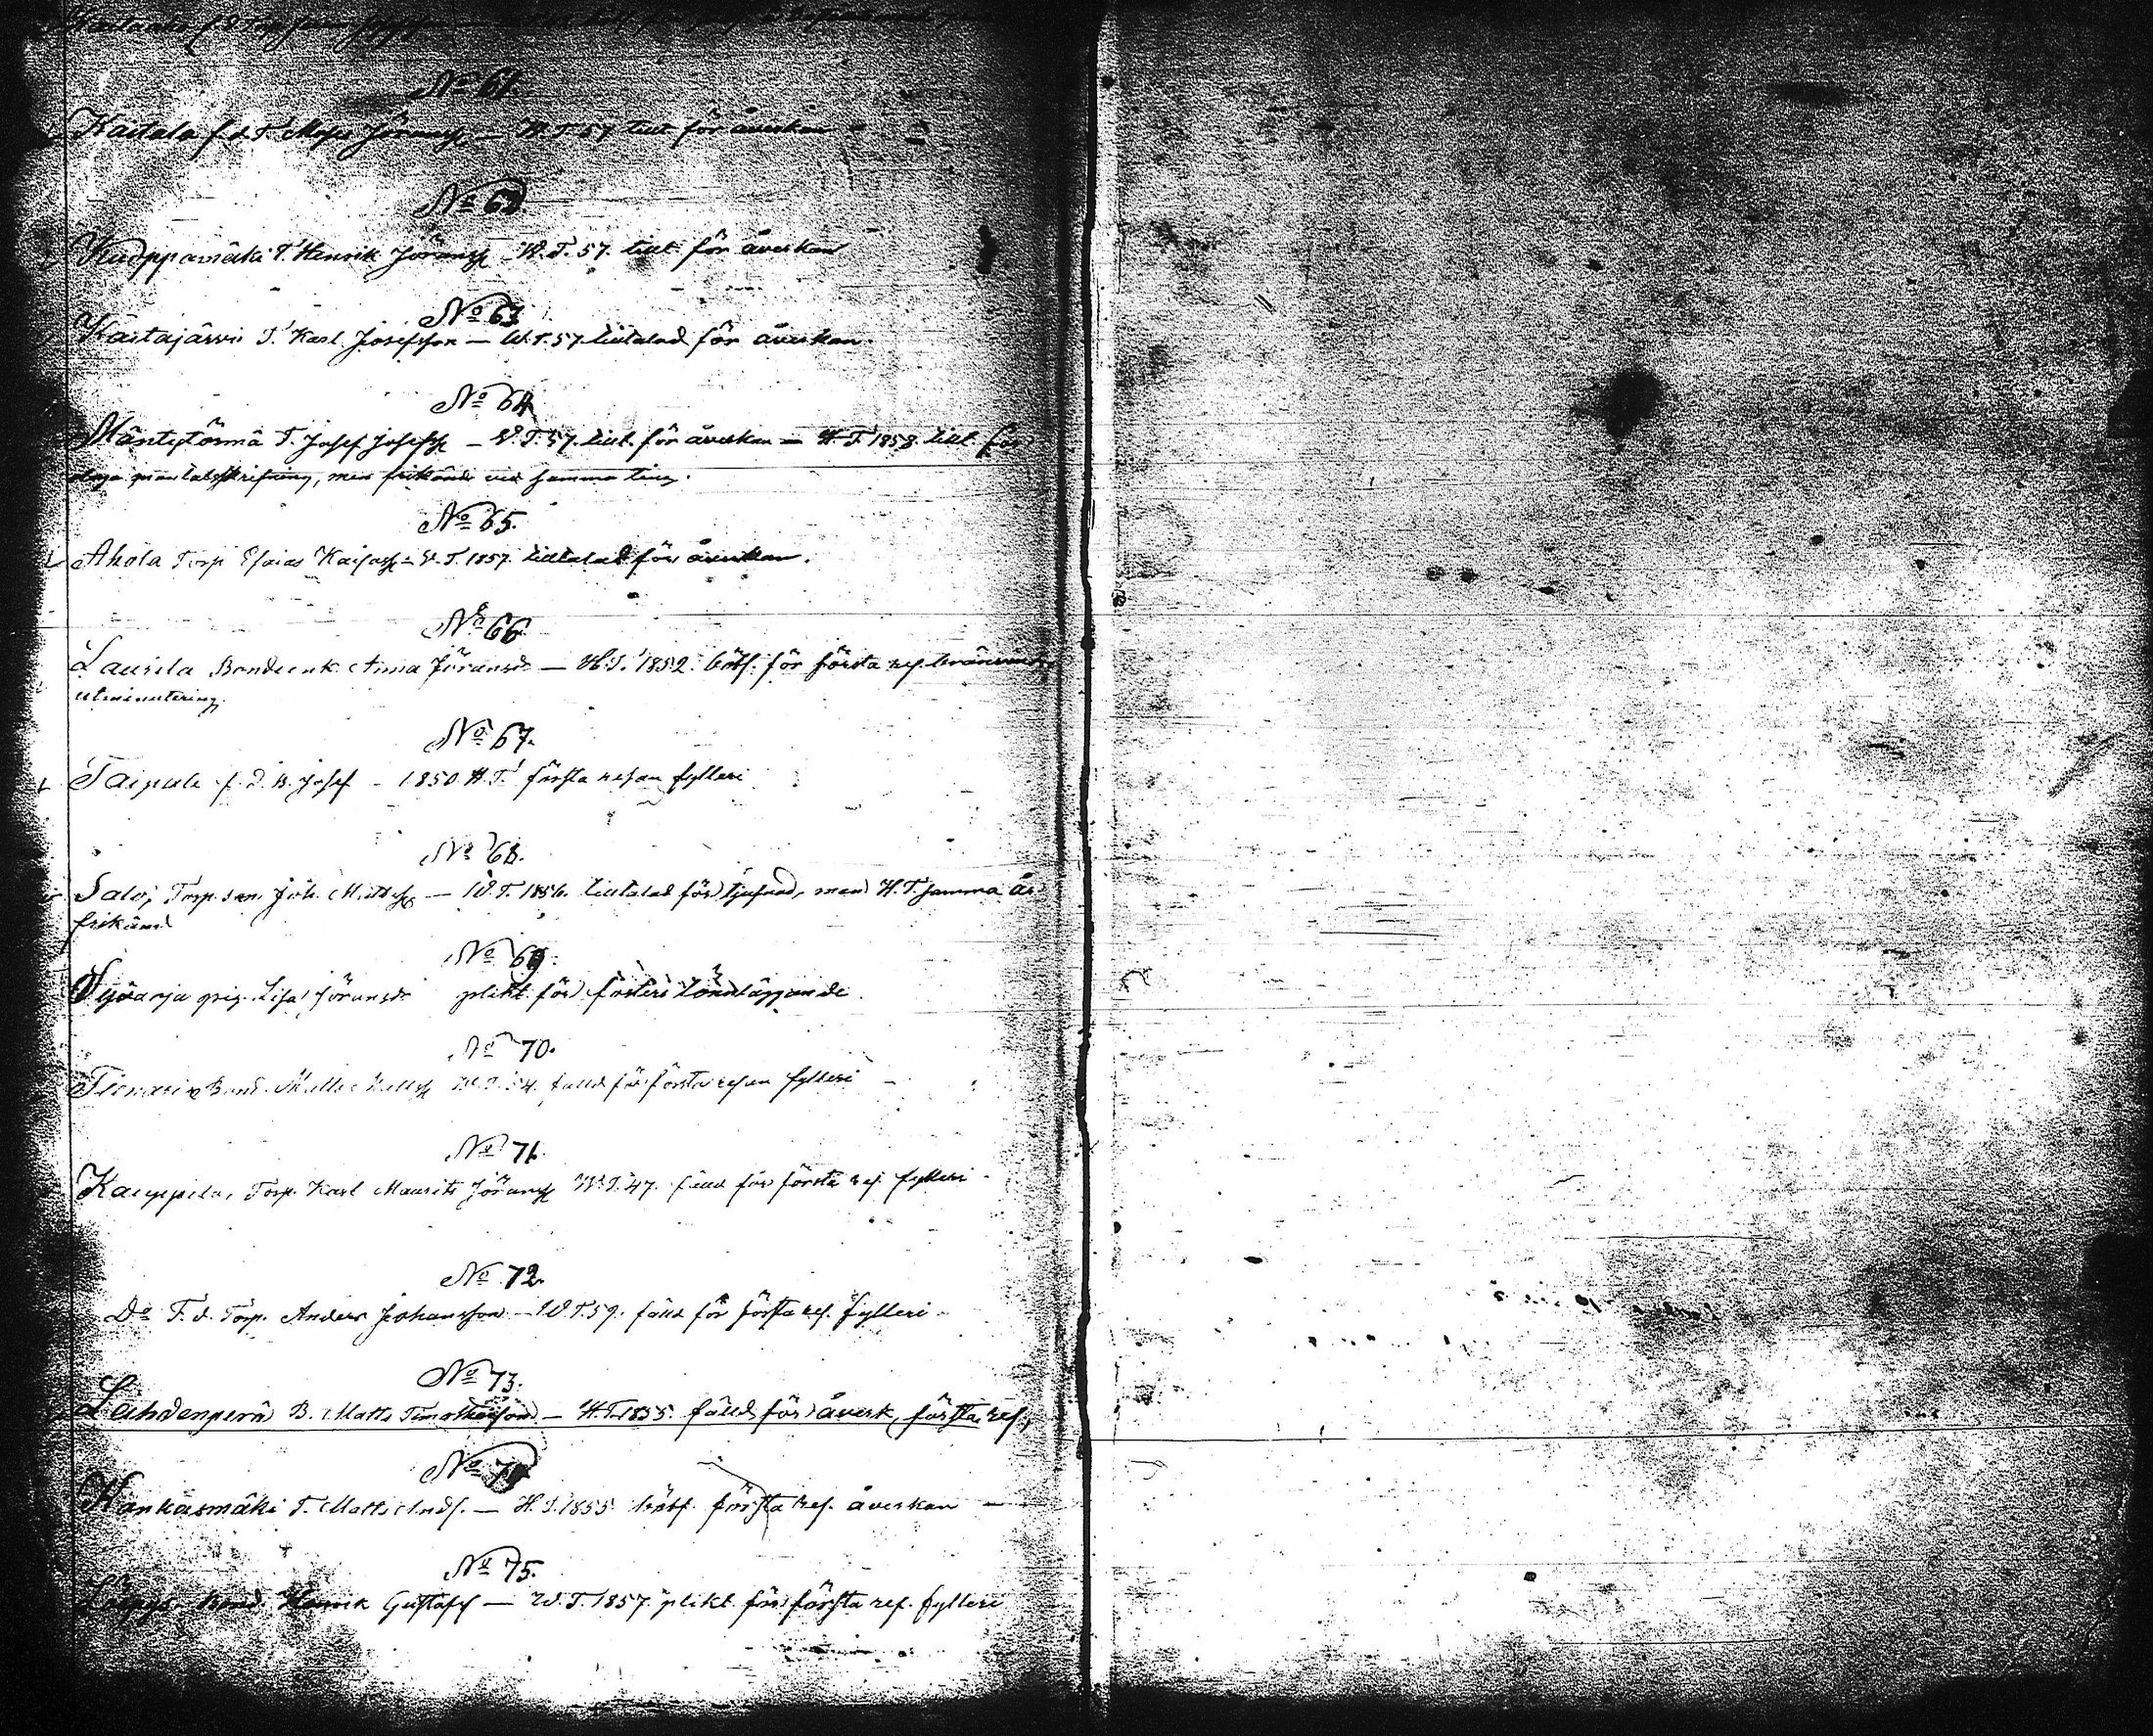 No 61.
Kaitala f. d. T. Moses Jöranss. — W. T. 57 tillt för åverkan
No 62.
Kudppamäki T. Henrik Jöranss. — W. T. 57. tillt. för åverkan
No 63
Kaitajärvi T. Karl Josefsson — W. T. 57 tilltalad för åverkan.
No 64
Mäntystörmä T. Josef Josefss. — W. T. 57. tillt. för åverkan — H. T. 1858 tillt. för
mantalsskrifning, men frikänd vid samma ting.
No 65.
Ahola Torp Esaias Kaisass. — V. T. 1857. tilltalad för åverkan.
No 66
Laurila Bondeenk. Anna Jöransd. — H. T. 1852. bötf. för första res. bränvins
utminutering.
No 67.
Taipale f. d. B. Josef — 1850 H. T. första resan fylleri
No 68.
Salo, Torp. son. Joh. Mattss. — W. T. 1856. tilltalad för tjufnad, men H. T. samma år
frikänd
No 69.
pig. Lisa Jöransd. plikt för fosters lönnläggande.
No 70.
Bond. Matts Mattss. W. T. 54. fälld för första resan fylleri —
No 71.
Kauppila, Torp. Karl Maurits Jöranss. W. T. 47. fälld för första res. fylleri —
No 72.
Do F. d. Torp. Anders Johansson — W. T. 59. fälld för första res. fylleri —
No 73.
Lahdenperä B. Matts Timotheusson — H. T. 1855. fälld för åverk, första res.
No 74
Hankasmäki T. Matts Ands. — H. T. 1855. bötf. första res. åverkan —
No 75.
Bond. Henrik Gustafss. — W. T. 1857 plikt för första res. fylleri